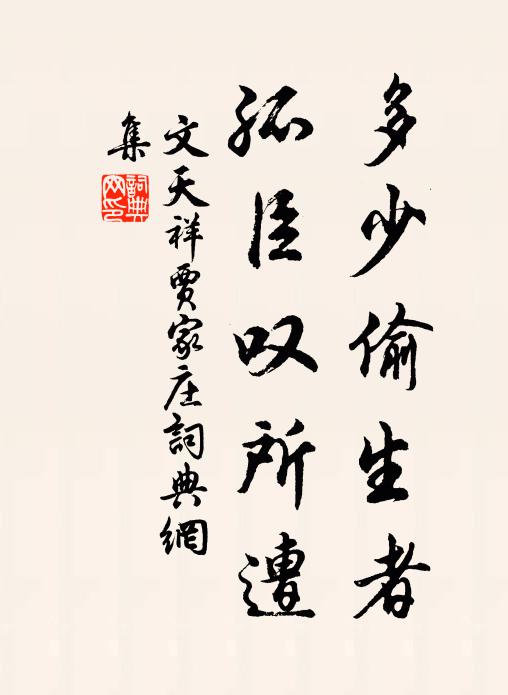 多少偷生者
孤臣叹所遭
文天祥賈家庄詞典網
集
詞典網印